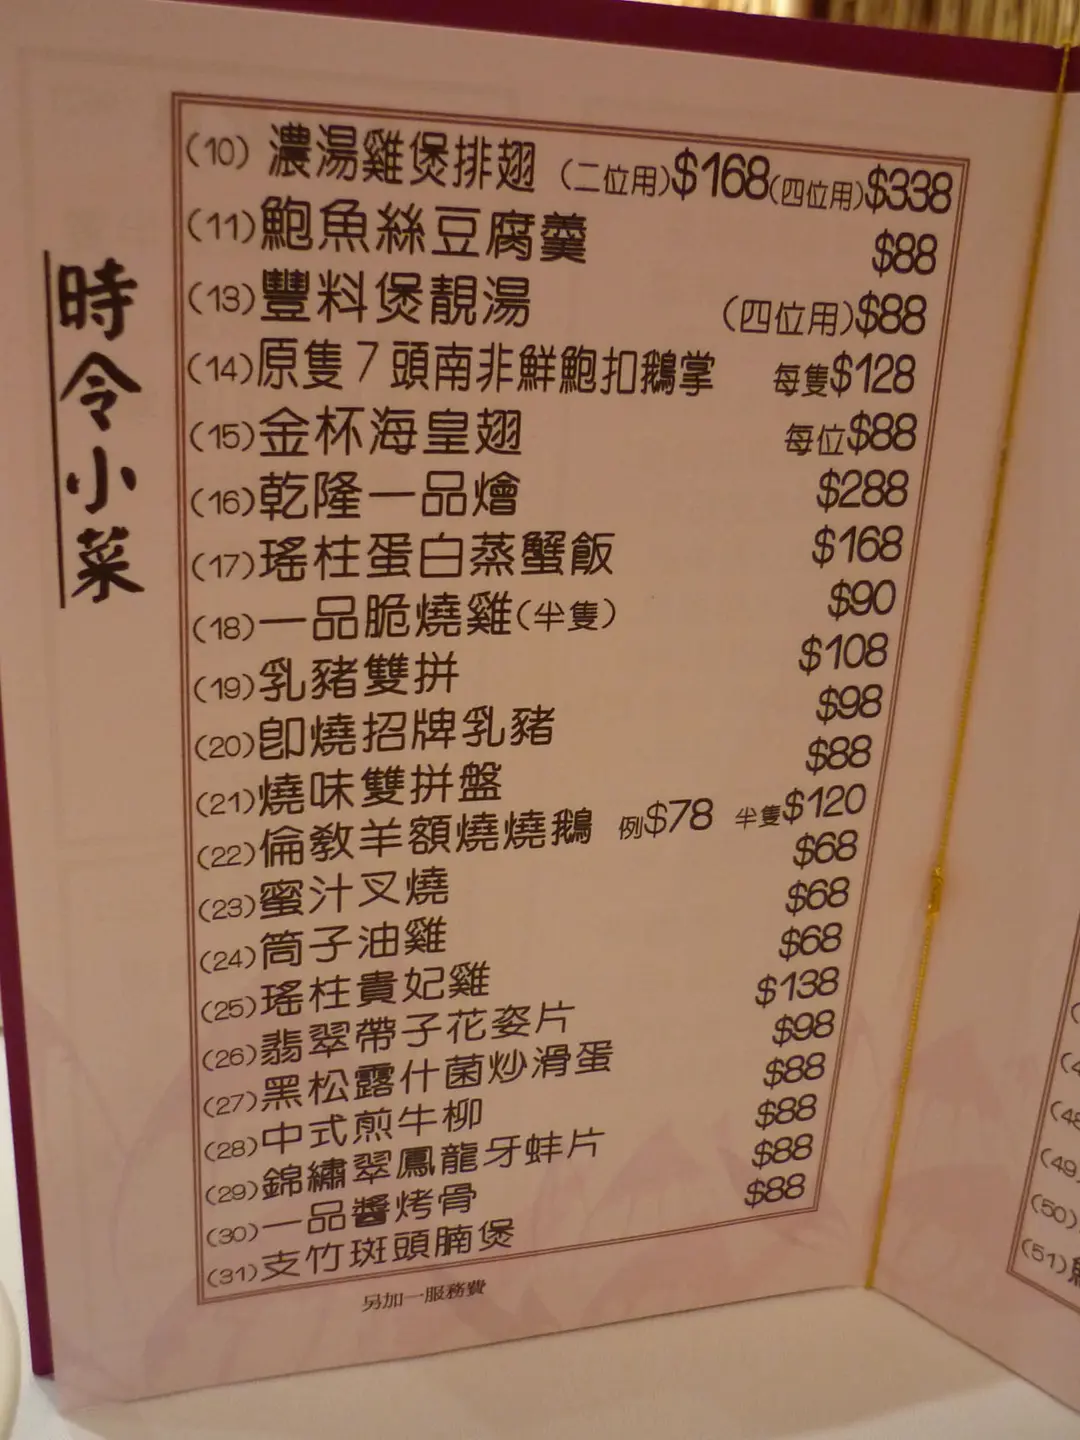 時令小菜
(10) 濃湯雞煲排翅 (二位用)$168(四位用)$338
(11)鮑魚絲豆腐羹 $88
(13)豐料煲靚湯 (四位用)$88
(14)原隻7頭南非鮮鮑扣鵝掌 每隻$128
(15)金杯海皇翅 每位$88
(16)乾隆一品燴 $288
(17)瑤柱蛋白蒸蟹飯 $168
(18)一品脆燒雞(半隻) $90
(19)乳豬雙拼 $108
(20)即燒招牌乳豬 $98
(21)燒味雙拼盤 $88
(22)倫教羊額燒燒鵝 例$78 半隻$120
(23)蜜汁叉燒 $68
(24)筒子油雞 $68
(25)瑤柱貴妃雞 $68
(26)翡翠帶子花姿片 $138
(27)黑松露什菌炒滑蛋 $98
(28)中式煎牛柳 $88
(29)錦繡翠鳳龍牙蚌片 $88
(30)一品醬烤骨 $88
(31)支竹斑頭腩煲 $88
另加一服務費
(48)
(49)
(50)
(51)